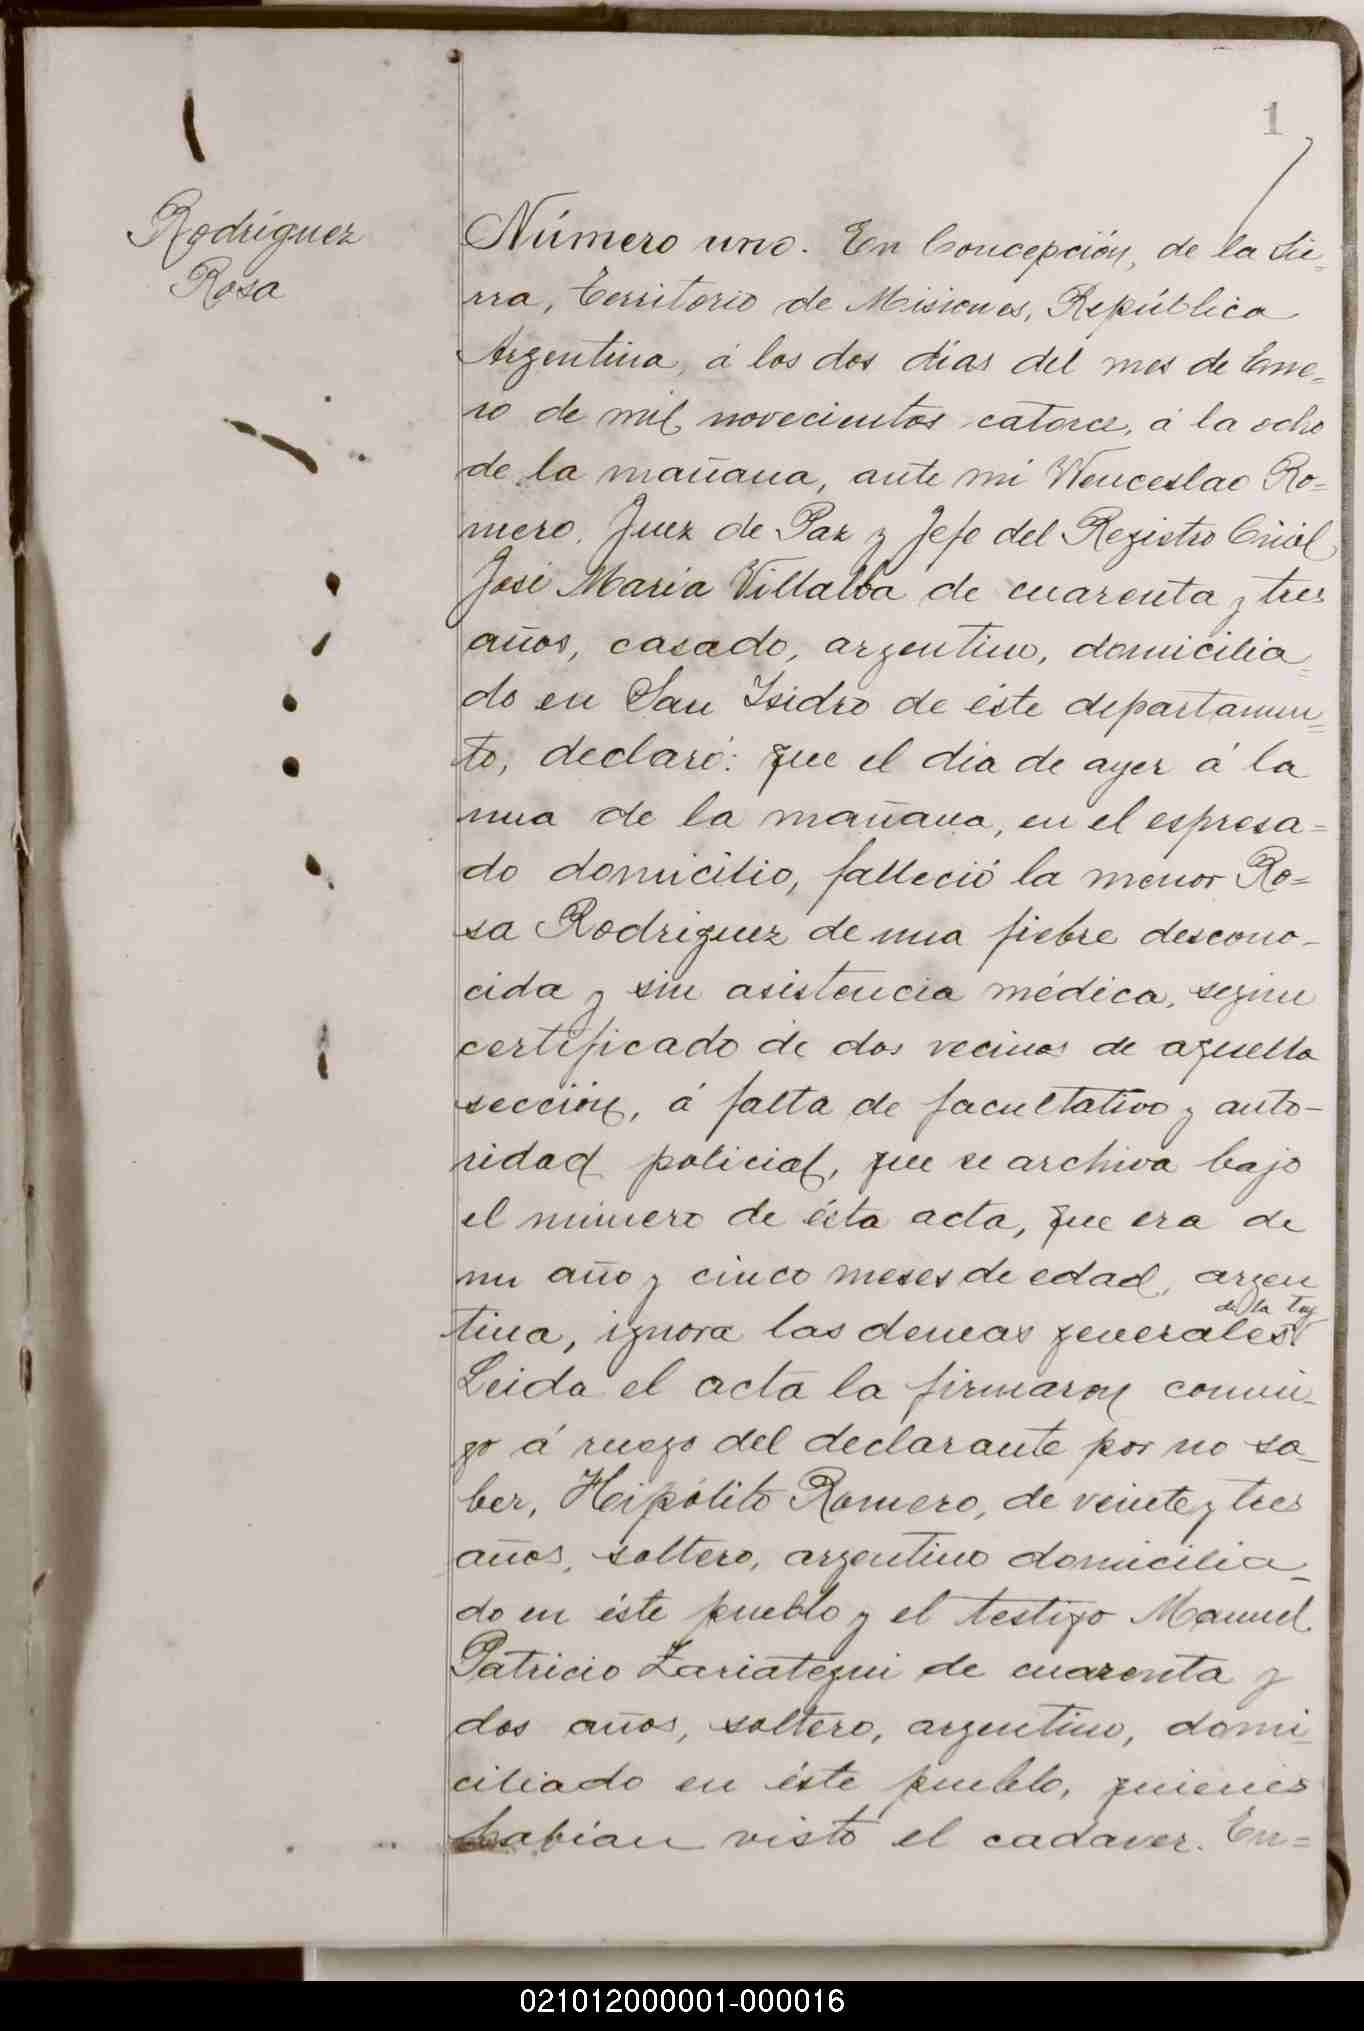 1
Rodriguez
Rosa
Número uno. En Concepción, de la Sie-
rra, Territorio de Misiones, República
Argentina, á los dos días del mes de Ene-
ro de mil novecientos catorce, á la ocho
de la mañana, ante mi Wenceslao Ro-
mero, Juez de Paz y Jefe del Registro Civil,
José Maria Villalba de cuarenta y tres
años, casado, argentino, domicilia-
do en San Isidro de éste departamen-
to, declaró: que el dia de ayer á la
una de la mañana, en el espresa-
do domicilio, falleció la menor Ro-
sa Rodriguez de una fiebre descono-
cida y sin asistencia médica, segun
certificado de dos vecinos de aquella
sección, á falta de facultativo y auto-
ridad policial, que se archiva bajo
el número de ésta acta, que era de
un año y cinco meses de edad, argen
de la
tina, ignora las demas generales
Leida el acta la firmaron conmi-
go á ruego del declarante por no sa-
ber, Hipólito Romero, de veinte y tres
años, soltero, argentino domicilia-
do en éste pueblo y el testigo Manuel
Patricio Zariategui de cuarenta y
dos años, soltero, argentino, domi-
ciliado en éste pueblo, quienes
habían visto el cadaver. En-
021012000001-000016